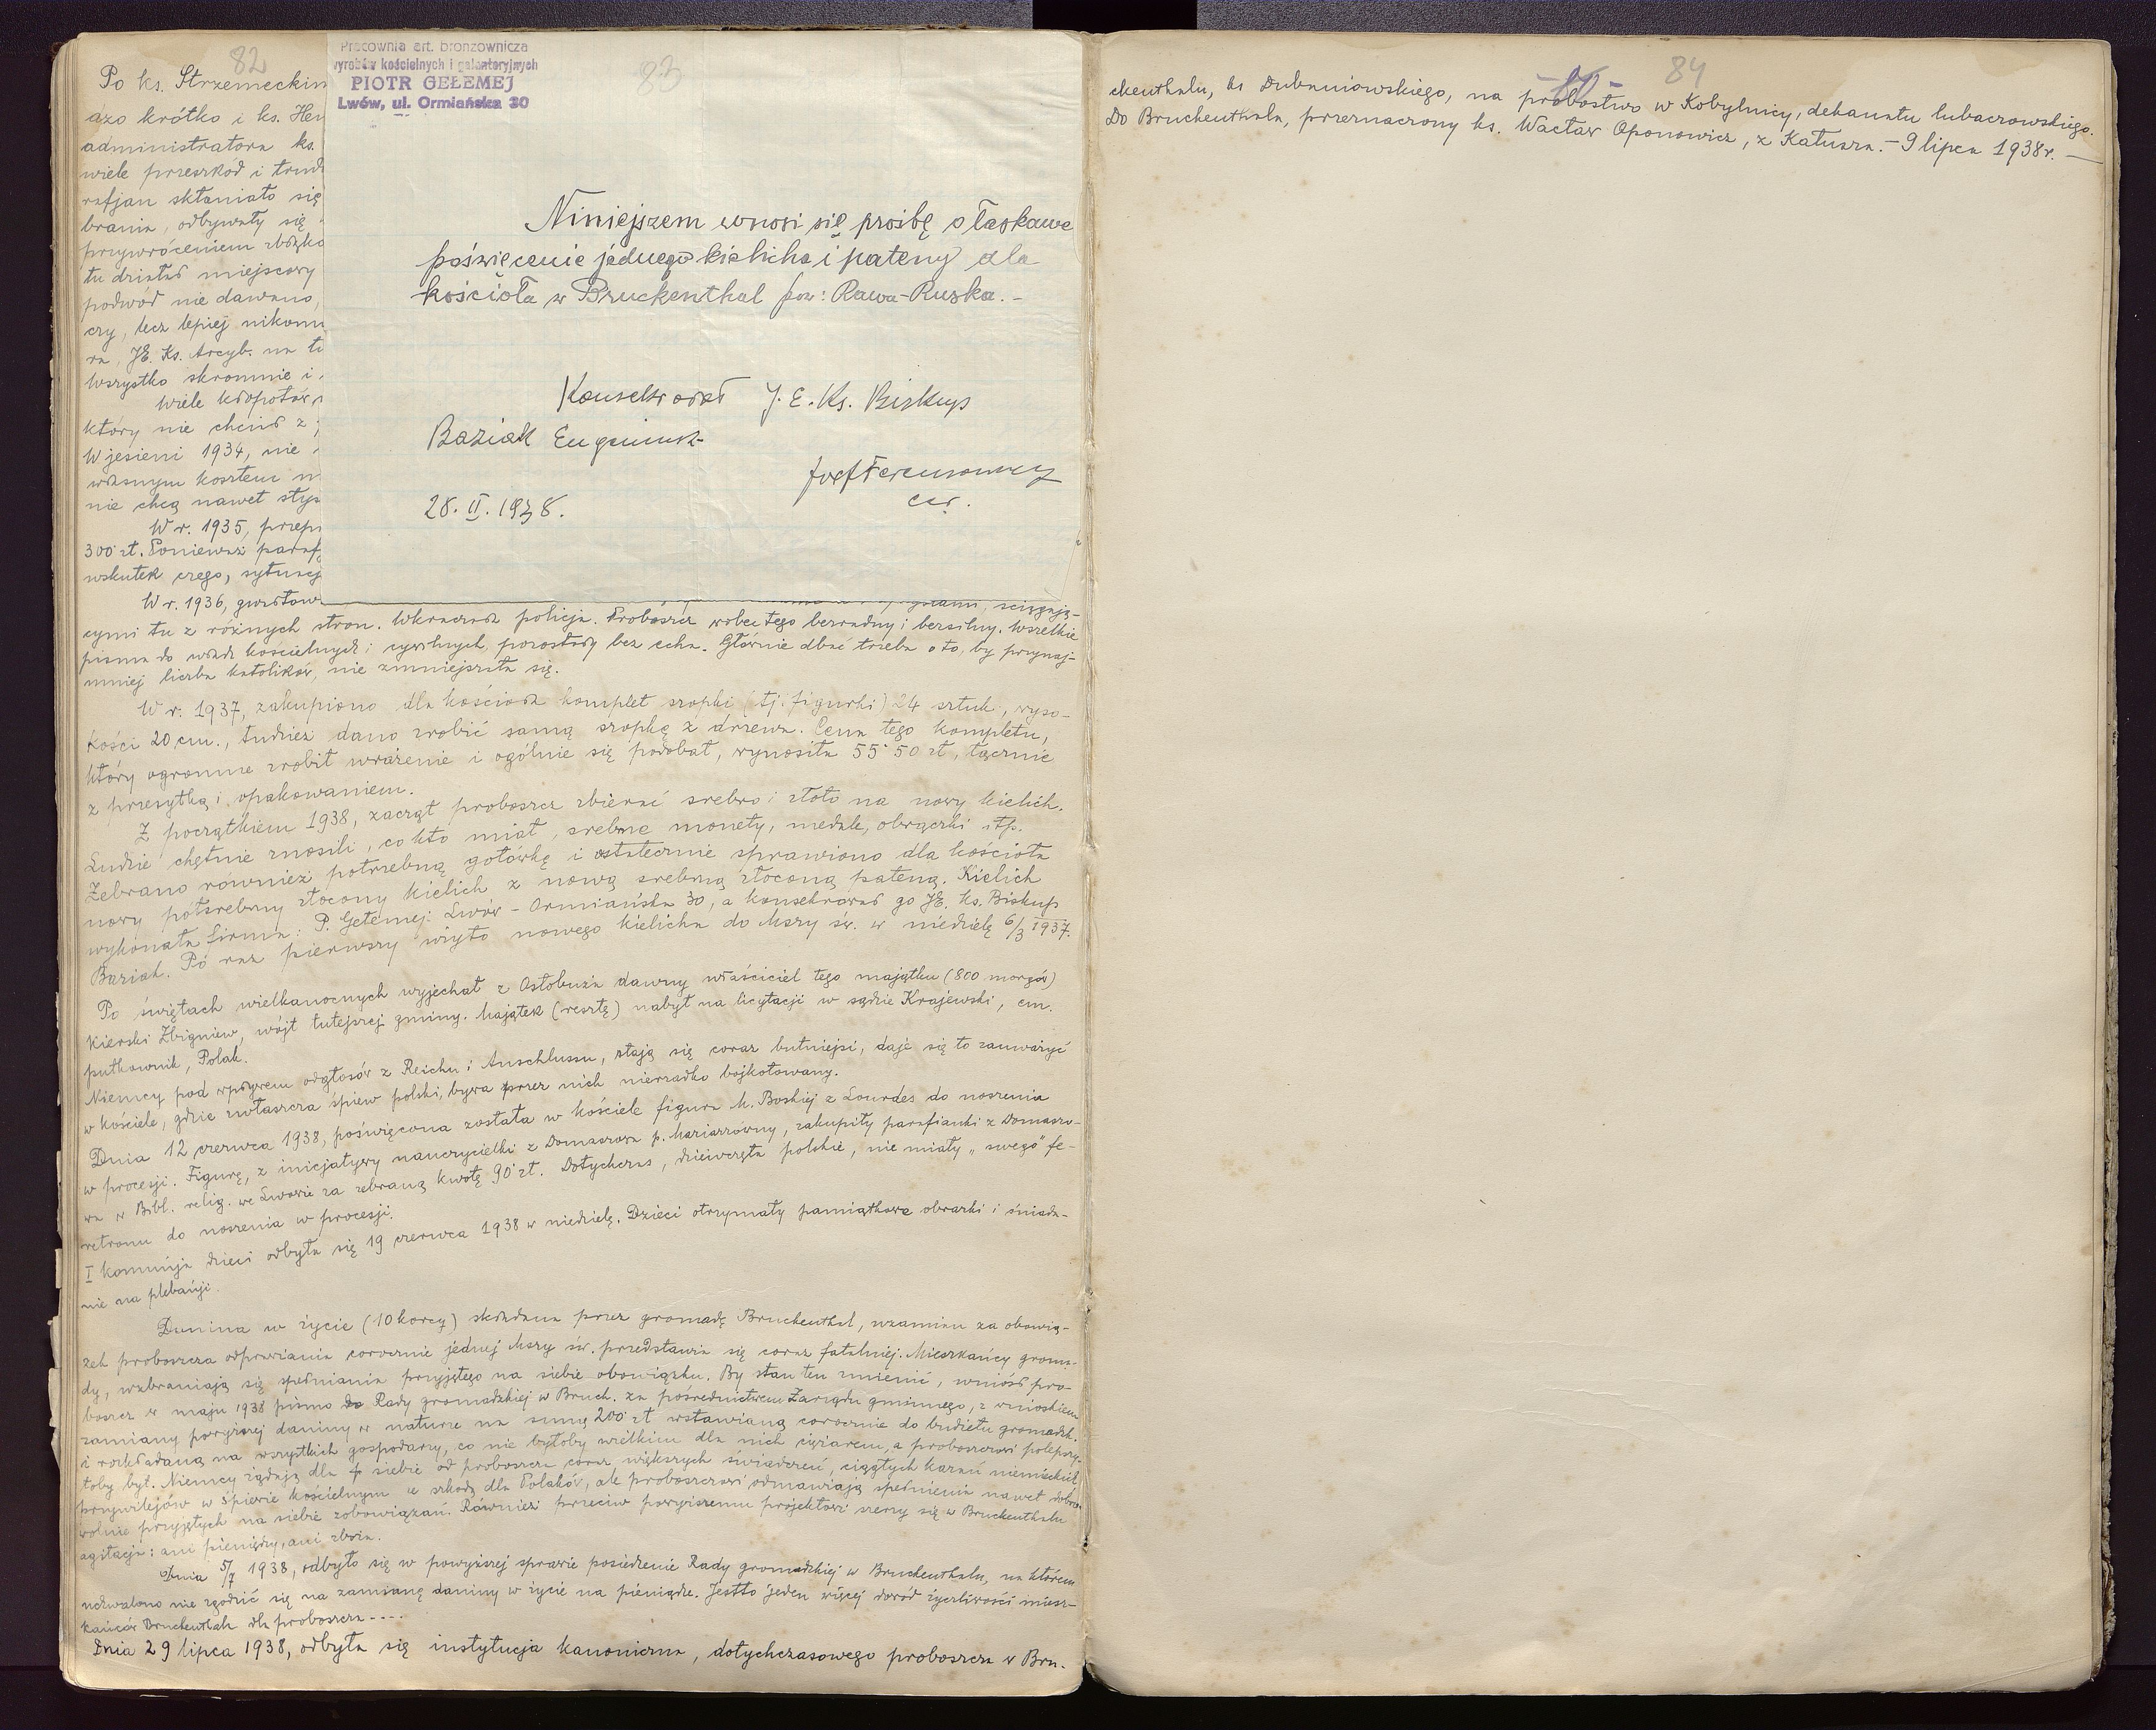 82
Po ks. Strzemeckim
dzo krótko i ks. Hen
administratora ks.
wiele przeszkód i trud
rafjan skłaniało się
brania, odbywały się
przywróceniem
tu działał miejscowy
podwód nie dawano,
czy, lecz lepiej nikomu
ra, JE. Ks. Arcyb. na
Wszystko skromnie i
Wiele kłopotów
który nie chciał z
W jesieni 1934, nie
własnym kosztem
nie chcą nawet słysz
W r. 1935, przep
300 zł. Ponieważ paraf
wskutek czego, sytuacj
W r. 1936,
83
Pracownia art. bronzownicza
wyrobów kościelnych i galanteryjnych
PIOTR GEŁEMEJ
Lwów, ul. Ormiańska 30
Niniejszem wnosi się prośbę o łaskawe
poświęcenie jednego kielicha i pateny dla
kościoła w Bruckenthal pow: Rawa-Ruska. -
Konsekrował J. E. Ks. Biskup
Baziak Eugeniusz
28. II. 1938.
ściągają-
cymi tu z różnych stron. Wkraczała policja. Proboszcz wobec tego bezradny i bezsilny. Wszelkie
pisma do władz kościelnych i cywilnych, pozostały bez echa. Głównie dbać trzeba o to, by przynaj-
mniej liczba katolików, nie zmniejszała się.
W r. 1937, zakupiono dla kościoła komplet szopki (tj. figurki) 24 sztuk, wyso-
kości 20 cm., tudzież dano zrobić samą szopkę z drzewa. Cena tego kompletu,
który ogromne zrobił wrażenie i ogólnie się podobał, wynosiła 55˙50 zł, łącznie
z przesyłką i opakowaniem.
Z początkiem 1938, zaczął proboszcz zbierać srebro i złoto na nowy kielich.
Ludzie chętnie znosili, co kto miał, srebrne monety, medale, obrączki itp.
Zebrano również potrzebną gotówkę i ostatecznie sprawiono dla kościoła
nowy półsrebrny złocony kielich z nową srebrną złoconą pateną. Kielich
wykonała firma: P. Gełemej: Lwów - Ormiańska 30, a konsekrował go JE. ks. Biskup
Baziak. Po raz pierwszy użyto nowego kielicha do Mszy św. w niedzielę 6/3 1937.
Po świętach wielkanocnych wyjechał z Ostobuża dawny właściciel tego majątku (800 morgów)
Kierski Zbigniew, wójt tutejszej gminy. Majątek (resztę) nabył na licytacji w sądzie Krajewski, em.
pułkownik, Polak.
Niemcy pod wpływem odgłosów z Reichu i Anschlussu, stają się coraz butniejsi, daje się to zauważyć
w kościele, gdzie zwłaszcza śpiew polski, bywa przez nich nierzadko bojkotowany.
Dnia 12 czerwca 1938, poświęcona została w kościele figura M. Boskiej z Lourdes do noszenia
w procesji. Figurę, z inicjatywy nauczycielki z Domaszowa p. Mariarzówny, zakupiły parafianki z Domaszo-
wa w Bibl. relig. we Lwowie za zebraną kwotę 90˙zł. Dotychczas, dziewczęta polskie, nie miały „swego" fe-
retronu do noszenia w procesji.
I komunja dzieci odbyła się 19 czerwca 1938 w niedzielę. Dzieci otrzymały pamiątkowe obrazki i śniada-
nie na plebanji.
Danina w życie (10 korcy) składana przez gromadę Bruckenthal, wzamian za obowią-
zek proboszcza odprawiania corocznie jednej Mszy św. przedstawia się coraz fatalniej. Mieszkańcy groma-
dy, wzbraniają się spełniania przyjętego na siebie obowiązku. By stan ten zmienić, wniósł pro-
boszcz w maju 1938 pismo do Rady gromadzkiej w Bruch. za pośrednictwem Zarządu gminnego, z wnioskiem
zamiany powyższej daniny w naturze na sumę 200˙zł wstawianą corocznie do budżetu gromadzk.
i rozkładaną na wszystkich gospodarzy, co nie byłoby wielkim dla nich ciężarem, a proboszczowi polepszy-
łoby byt. Niemcy żądają dla siebie od proboszcza coraz większych świadczeń, ciągłych kazań niemieckich,
przywilejów w śpiewie kościelnym ze szkodą dla Polaków, ale proboszczowi odmawiają spełnienia nawet dobro-
wolnie przyjętych na siebie zobowiązań. Również przeciw powyższemu projektowi szerzy się w Bruckenthalu
agitacja: ani pieniędzy, ani zboża.
Dnia 5/7 1938, odbyło się w powyższej sprawie posiedzenie Rady gromadzkiej w Bruckenthalu, na którem
uchwalono nie zgodzić się na zamianę daniny w życie na pieniądze. Jestto jeden więcej dowód życzliwości miesz-
kańców Bruckenthalu dla proboszcza ----
Dnia 29 lipca 1938, odbyła się instytucja kanoniczna, dotychczasowego proboszcza w Bru-
84
ckenthalu, ks Dubaniowskiego, na probostwo w Kobylnicy, dekanatu lubaczowskiego.
Do Bruckenthala, przeznaczony ks. Wacław Oponowicz, z Kałusza. - 9 lipca 1938r. -